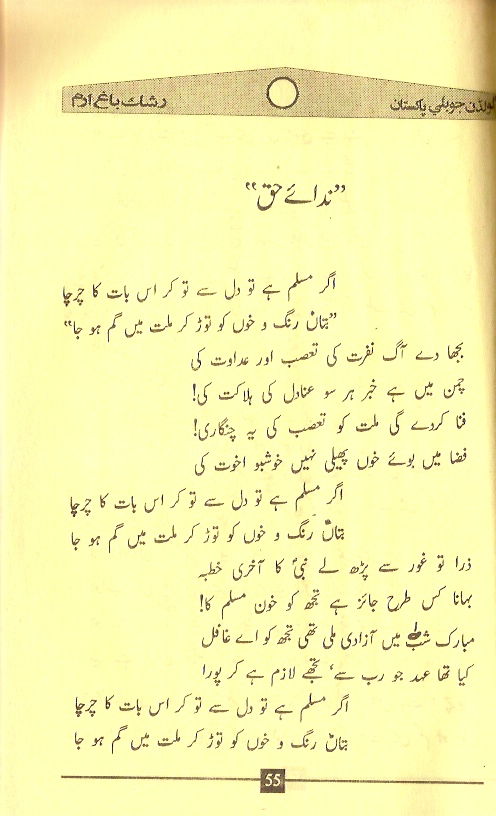 گولڈن جوبلی پاکستان
رشک باغ ارم
”ندائے حق“
اگر مسلم ہے تو دل سے تو کر اس بات کا چرچا
”بتانِ رنگ و خوں کو توڑ کر ملت میں گم ہو جا“
بجھا دے آگ نفرت کی تعصب اور عداوت کی
چمن میں ہے خبر ہر سو عنادل کی ہلاکت کی!
فنا کردے گی ملت کو تعصب کی یہ چنگاری!
فضا میں بوئے خوں پھیلی نہیں خوشبو اخوت کی
اگر مسلم ہے تو دل سے تو کر اس بات کا چرچا
بتانِ رنگ و خوں کو توڑ کر ملت میں گم ہو جا
ذرا تو غور سے پڑھ لے نبیؐ کا آخری خطبہ
بہانا کس طرح جائز ہے تجھ کو خون مسلم کا!
مبارک شب میں آزادی ملی تھی تجھ کو اے غافل
کیا تھا عہد جو رب سے، تجھے لازم ہے کر پورا
اگر مسلم ہے تو دل سے تو کر اس بات کا چرچا
بتانِ رنگ و خوں کو توڑ کر ملت میں گم ہو جا
55